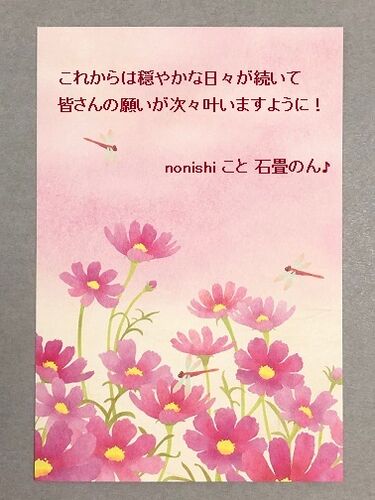 これからは穏やかな日々が続いて
皆さんの願いが次々叶いますように！
nonishi こと 石畳のん♪